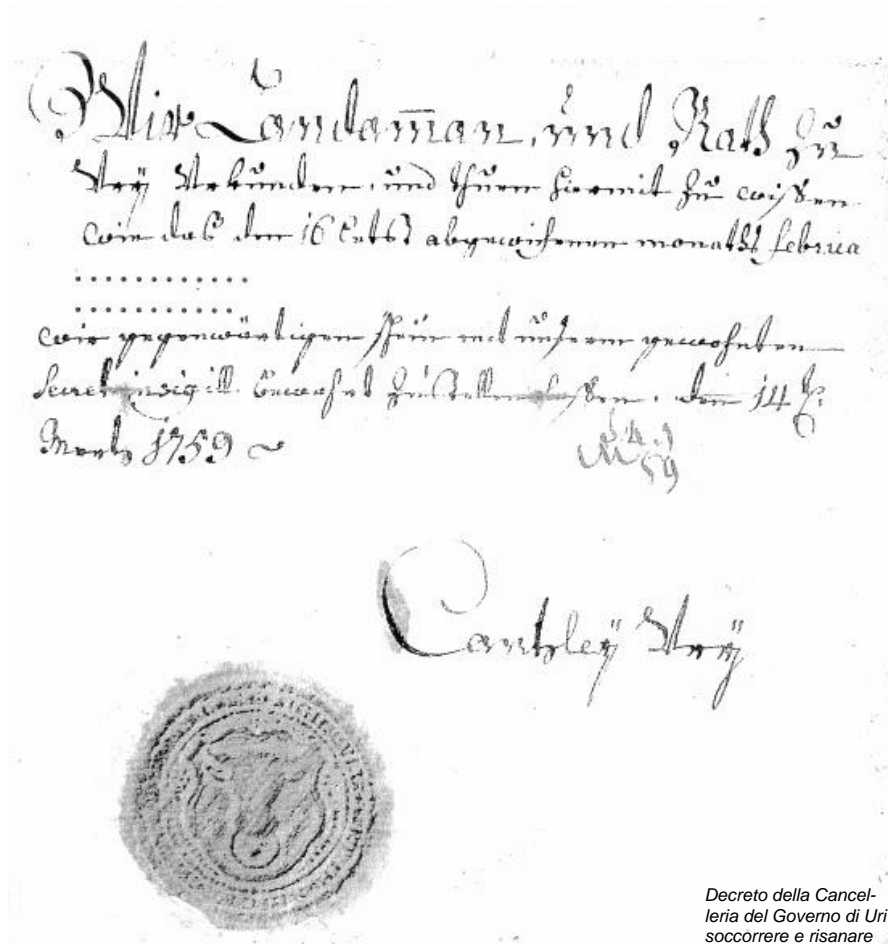 Wir Landam̄an, und Rath zu
Vrÿ Vrkunden, und thuen hiermit zu wissen
wie das den 16 abgewichenen monaths februa
..............
.............
wir gegenwärtigen mit unserem gewohnten
Secret insigill bewahrt zustellen lassen, den 14
Mertz 1759
Cantzleÿ Vrÿ
Decreto della Cancel-
leria del Governo di Uri
soccorrere e risanare